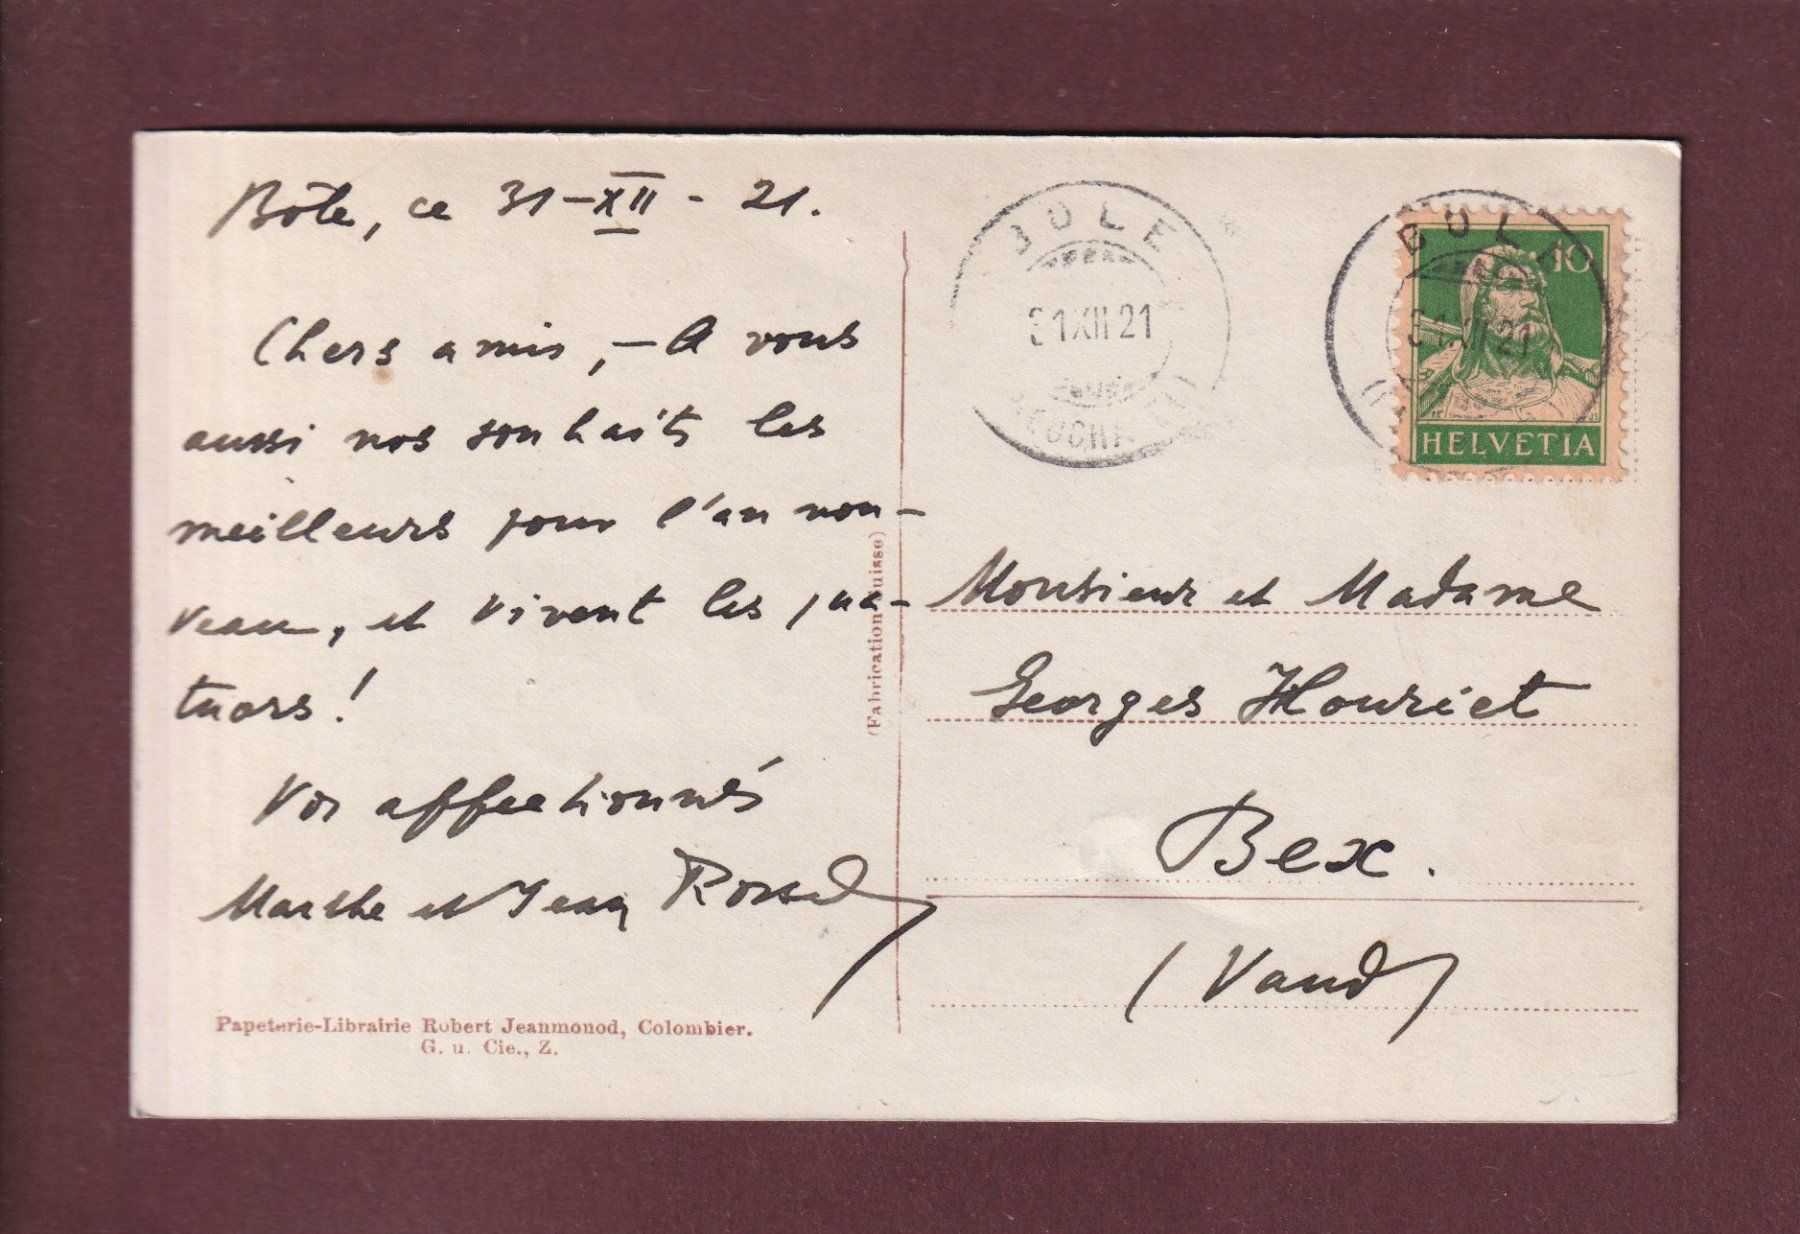 Bôle, ce 31-XII-21.
Chers amis, - A vous
aussi nos souhaits les
meilleurs pour l'an nou-
veau, et vivent les qua-
tuors!
Vos affectionnés
Marthe et Jean Rossel
Papeterie-Librairie Robert Jeanmonod, Colombier.
G. u. Cie., Z.
(Fabrication suisse)
BOLE
31 XII 21
BOLE
31 XII 21
10
HELVETIA
Monsieur et Madame
Georges Houriet
Bex.
(Vaud)